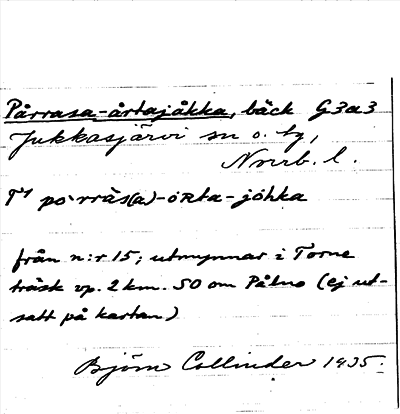 Pårrasa-årtajåkka, bäck G3a3
Jukkasjärvi sn o. tg,
Nrrb. l.
po·rràs(a)-oRta-johka
från n:r 15; utmynnar i Torne
träsk vp. 2 km. SO om Påtno (ej ut-
satt på kartan)
Björn Collinder 1935.